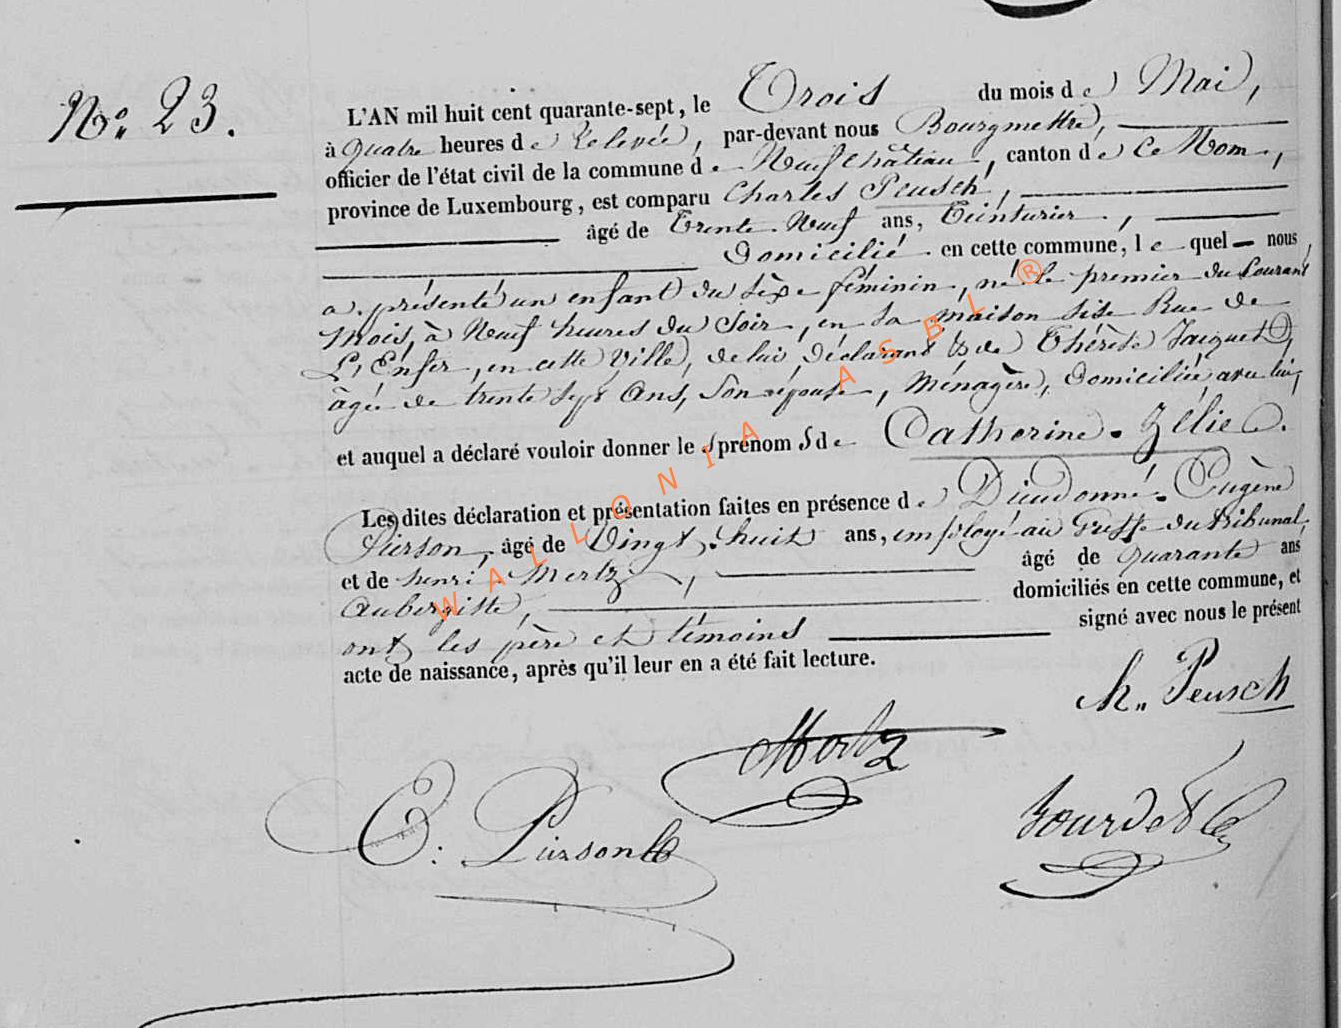 N.º 23.
L'AN mil huit cent quarante-sept, le Trois du mois de Mai,
à quatre heures de Relevée, par-devant nous Bourgmettre,
officier de l'état civil de la commune de Neufchâteau, canton de Ce Nom,
province de Luxembourg, est comparu Charles Peusch,
âgé de Trente-Neuf ans, Teinturier,
Domicilié en cette commune, le quel nous
a présenté un enfant du sèxe féminin, né le premier du Courant
mois, à Neuf heures du Soir, en sa maison sise Rue de
L'Enfer, en cette Ville, de lui, déclarant & de Thérèse Jacquet,
âgée de trente sept ans, Son épouse, Ménagère, domiciliée avec lui,
et auquel a déclaré vouloir donner les prénom S de Catherine-Zélie.
Les dites déclaration et présentation faites en présence de Dieudonné-Eugène
Pierson, âgé de Vingt-huit ans, employé au Greffe du tribunal,
et de henri Mertz, âgé de quarante ans
aubergiste, domiciliés en cette commune, et
ont les père et témoins signé avec nous le présent
acte de naissance, après qu'il leur en a été fait lecture.
Ch. Peusch
Mertz
E. Pierson
WALLONIA ASBL ®